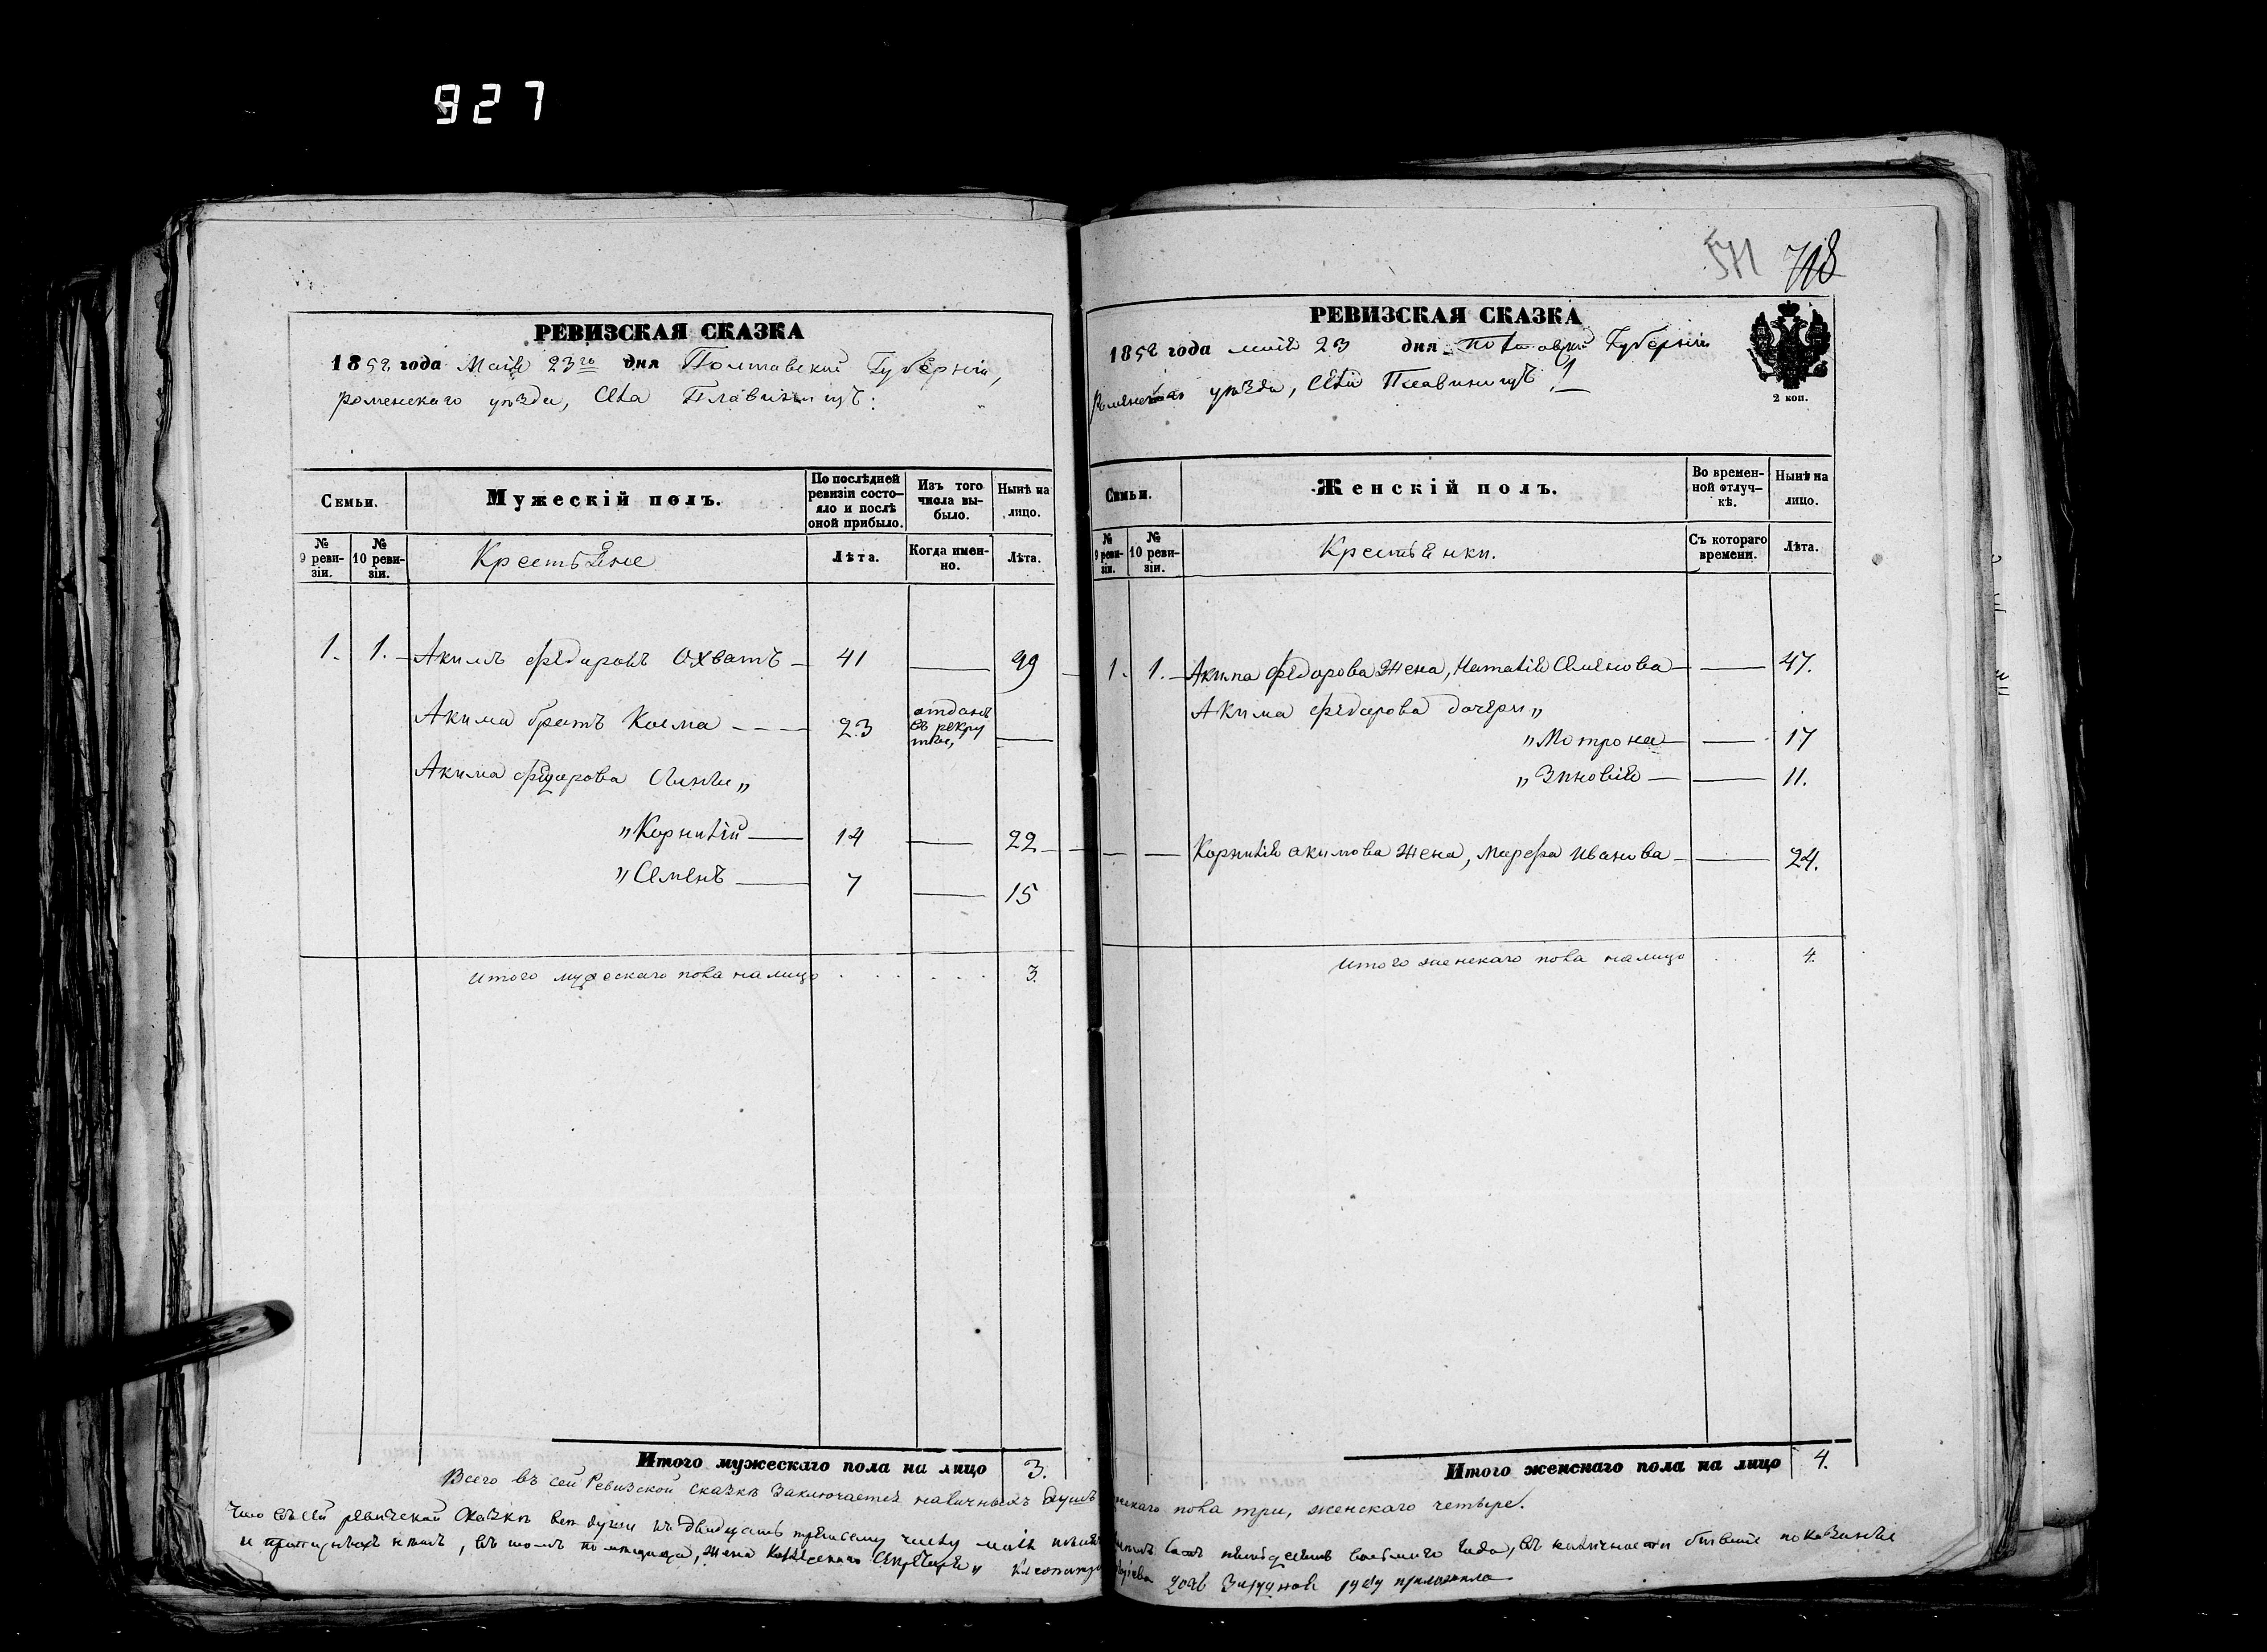 927
571 718
РЕВИЗСКАЯ СКАЗКА
1858 года Маія 23го дня Полтавской Губерніи,
роменскаго уѣзда, села Плавинищъ:
Семьи.
Мужескій полъ.
По послѣдней ревизіи состояло и послѣ оной прибыло.
Изъ того числа выбыло.
Нынѣ на лицо.
№ 9 ревизіи.
№ 10 ревизіи.
Крестьяне
Лѣта.
Когда именно.
Лѣта.
1. 1. Акимъ федоровъ Охватъ 41 — 49
Акима братъ Косма 23 отданъ въ рекруты, —
Акима федорова сыновья „
„Корнилій 14 — 22
„Семенъ 7 — 15
Итого мужескаго пола налицо 3.
Итого мужескаго пола на лицо 3.
РЕВИЗСКАЯ СКАЗКА
1858 года маія 23 дня Полтавской Губерніи
Роменскаго уѣзда, села Плавинищъ
2 коп.
Семьи.
Женскій полъ.
Во временной отлучкѣ.
Нынѣ на лицо.
№ 9 ревизіи.
№ 10 ревизіи.
Крестьянки.
Съ котораго времени.
Лѣта.
1. 1. Акима федорова жена, Наталія Семенова — 47.
Акима федорова дочери „
„Мотрона — 17
„Зиновія — 11.
— — Корнилія акимова жена, Марфа Иванова — 24.
Итого женскаго пола налицо 4.
Итого женскаго пола на лицо 4.
Всего въ сей Ревизской сказкѣ заключается наличныхъ душъ мужескаго пола три, женскаго четыре.
Что въ сей ревизской сказкѣ всѣ души къ двадцать третьему числу маія тысяча восемь сотъ пятьдесятъ восьмаго года, въ наличности бывшіе показаны
и прописныхъ нѣтъ, въ томъ помѣщица, жена Секретаря дочь руку приложила